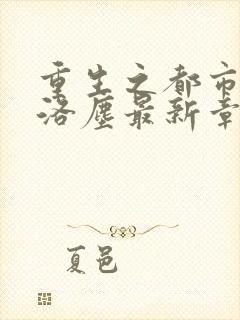 重生之都市
洛尘最新章
夏邑